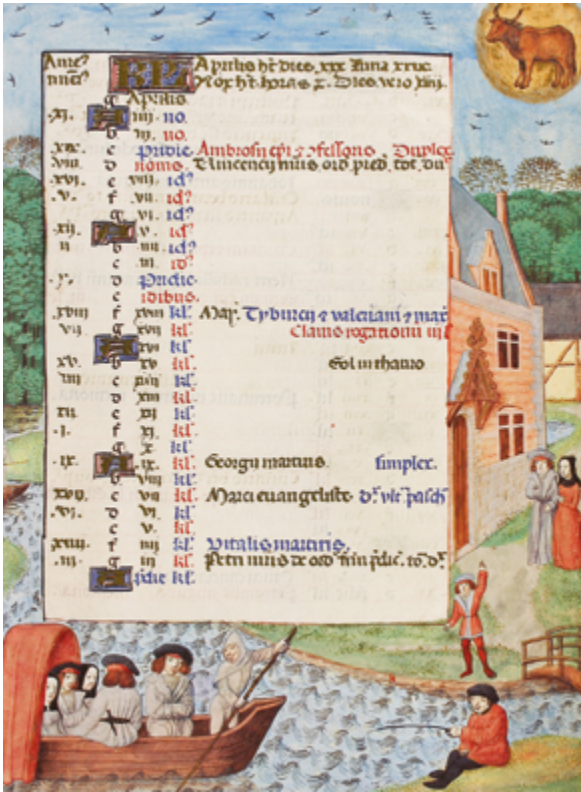 Aure⁹ Aprilis ht dies xxx luna xxix
nūer⁹ KL Nox ht horas x. Dies vero xiiij.
g Aprilis.
.xi. A iiij. no.
b iij. no.
.xix. c pridie Ambrosii epi ⁊ ꝯfessoris Duplex.
viij. d nonis. Vincencij mris ord pred. tot. du
xvi. e viij. id⁹
.v. f vij. id⁹
g vi. id⁹
.xij. A v. id⁹
ij b iiij. id⁹
c iij. id⁹
.x. d pridie
e idibus.
.xviij f xviij kl. May. Tyburcij ⁊ valeriani ⁊ max
vij g xvij kl. Clavis rogationum iij
A xvi kl.
xv. b xv kl. Sol in thauro
iiij c xiiij kl.
d xiij kl.
xij e xij kl.
.i. f xi kl.
g x. kl.
.ix. A .ix kl. Georgij martiris. simplex.
b viij kl.
xvij. c vij kl. Marci euangeliste d⁹
.vi. d vi. kl.
e v. kl.
xiiij. f iiij kl. Vitalis martiris.
.iij. g iij kl. Petri mris de ord
A pdie kl.